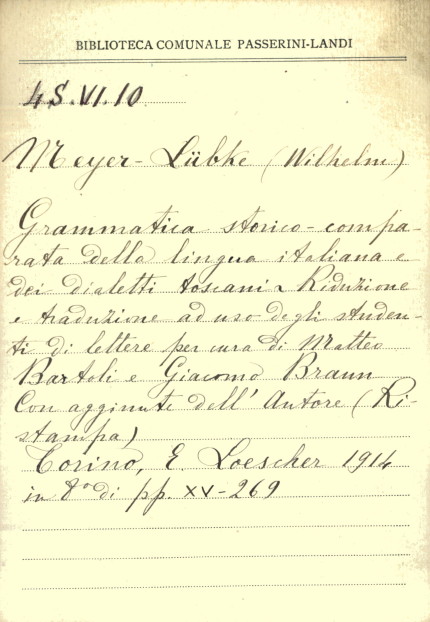 BIBLIOTECA COMUNALE PASSERINI-LANDI
4S.VI.10
Meyer-Lübke (Wilhelm)
Grammatica storico-compa-
rata della lingua italiana e
dei dialetti toscani. Riduzione
e traduzione ad uso degli studen-
ti di lettere per cura di Matteo
Bartoli e Giacomo Braun
Con aggiunte dell' Autore (Ri-
stampa)
Torino, E. Loescher 1914
in 8° di pp. XV-269